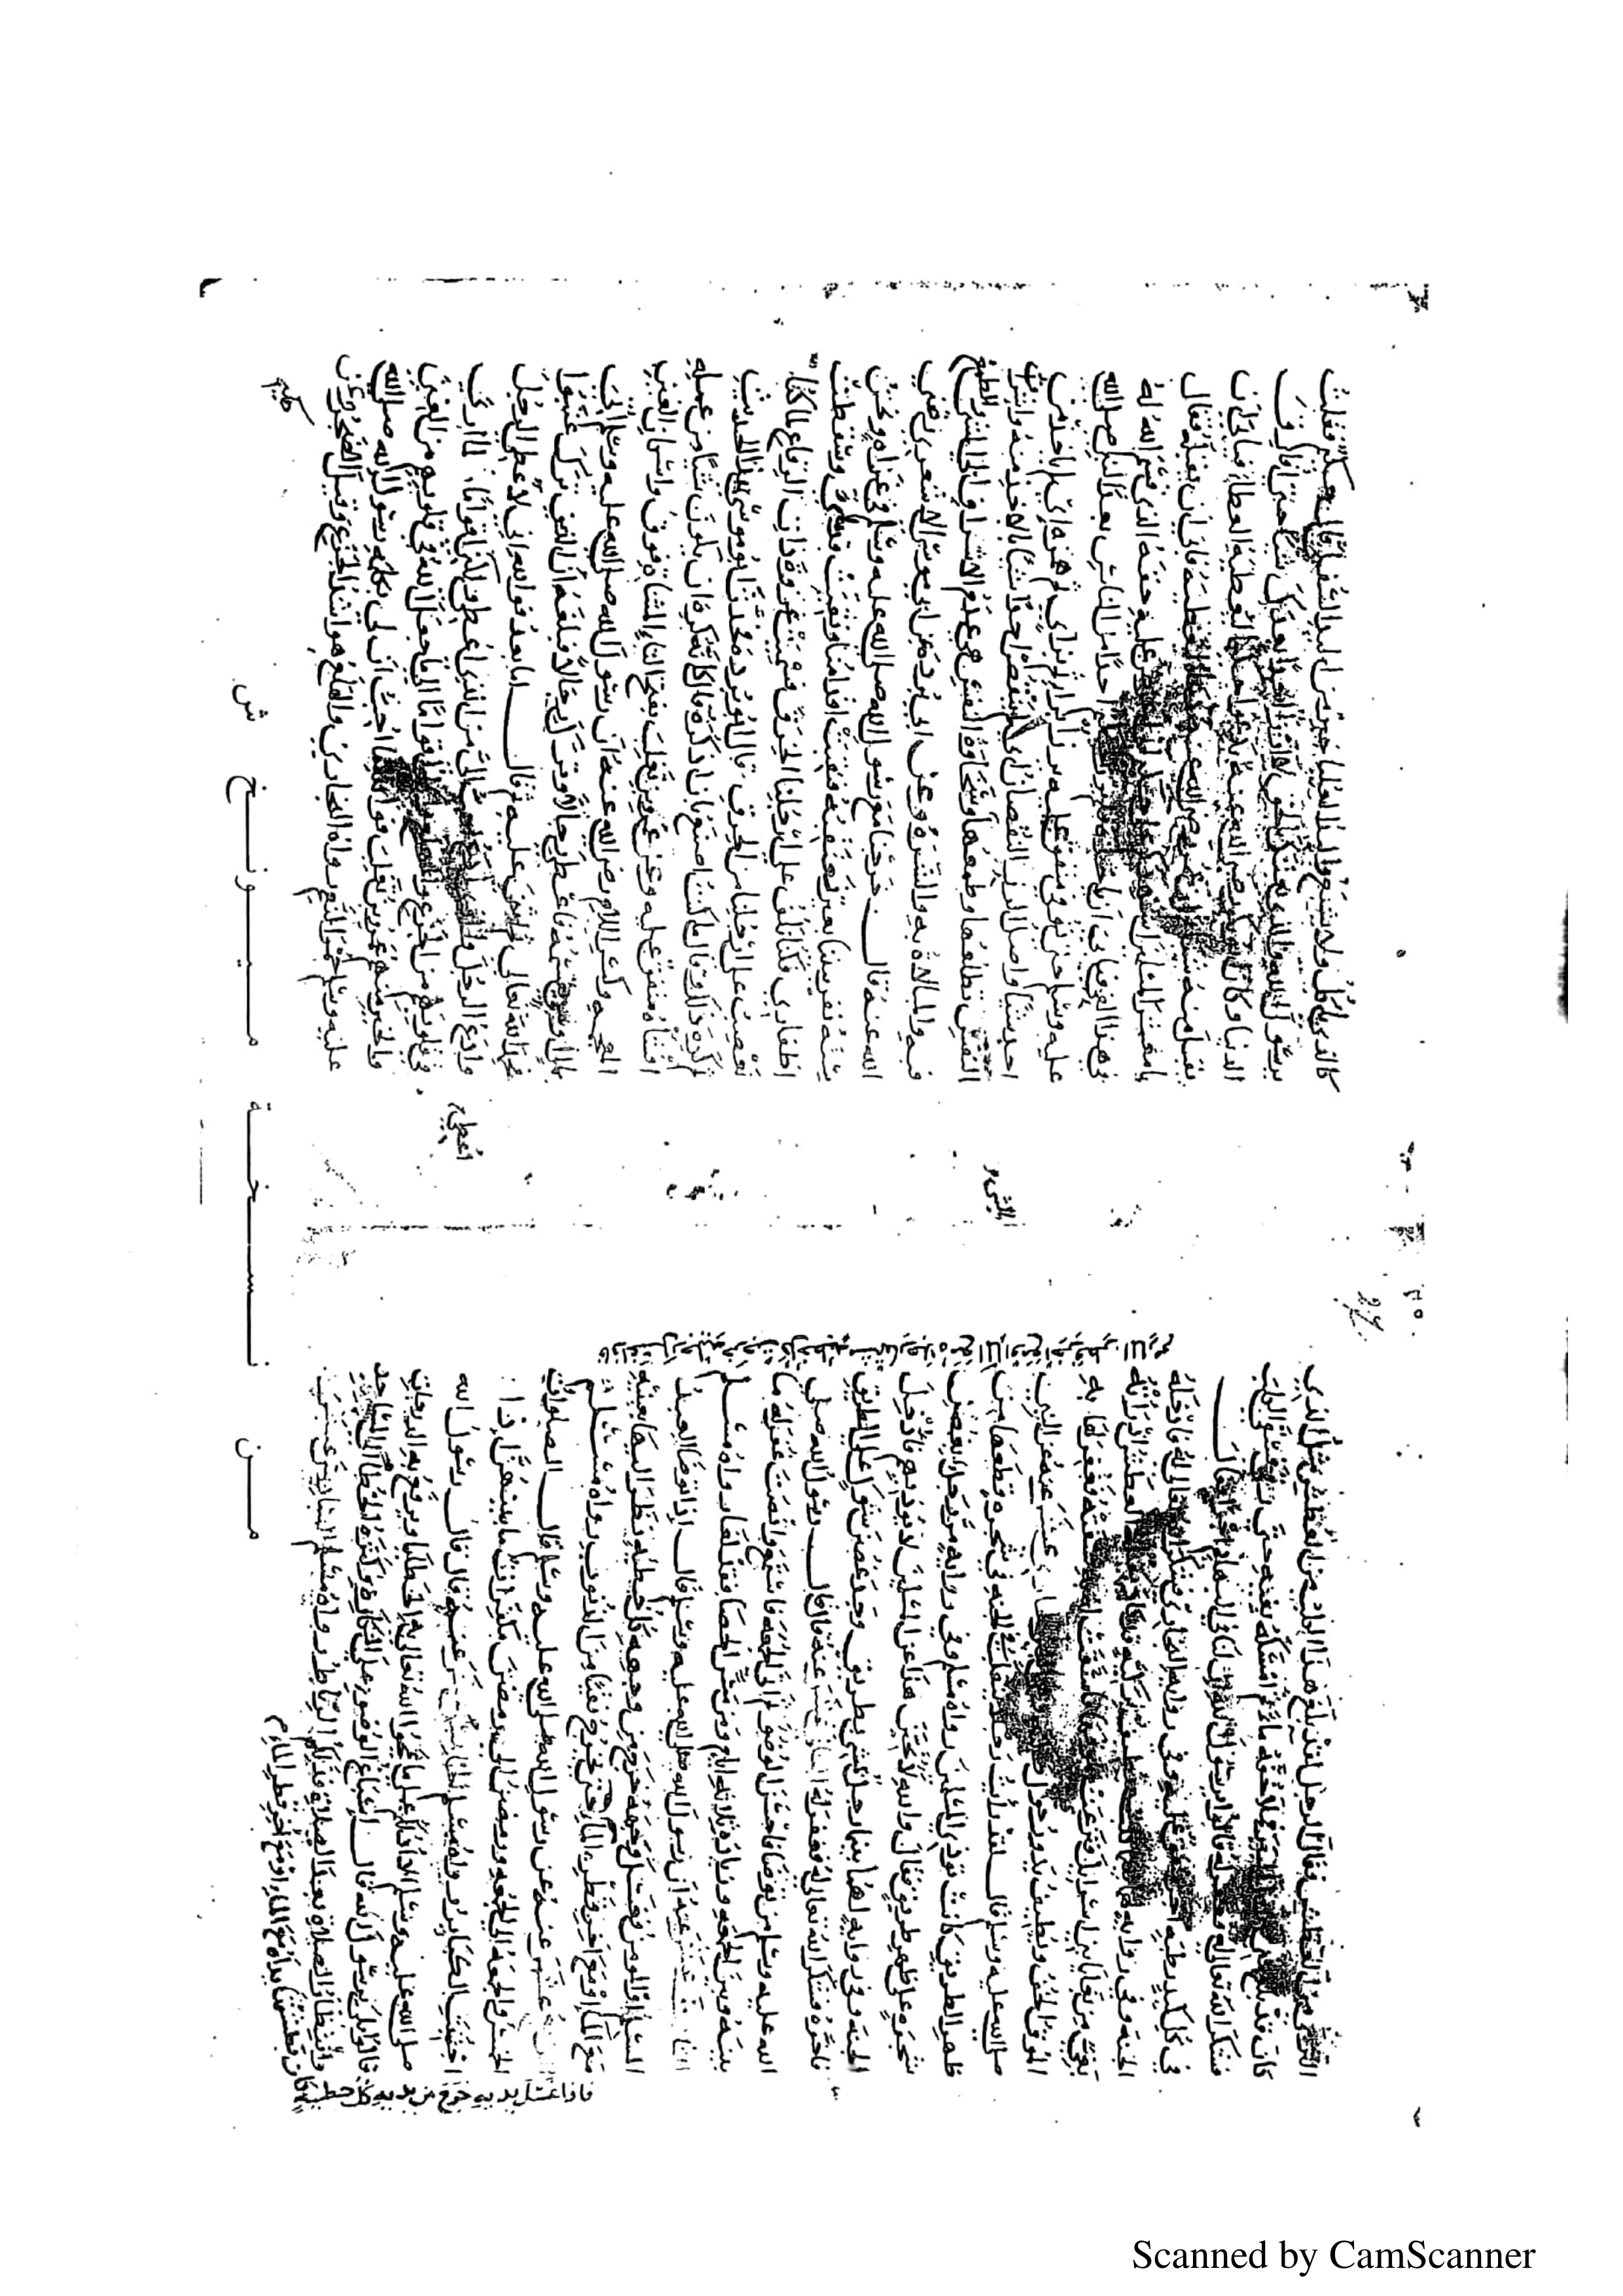 الثرى من العطش فقال الرجل لقد بلغ هذا الكلب من العطش مثل الذي
كان قد بلغ مني فنزل البئر فملأ خفه ماء ثم امسكه بفيه حتى رقي فسقى الكلب
فشكر الله تعالى له فغفر له قالوا يا رسول الله ان لنا في البهائم اجرا فقال
في كل كبد رطبة اجر متفق عليه وفي رواية للبخاري فشكر الله تعالى له فادخله
الجنة وفي رواية لهما بينما كلب يطيف بركية قد كاد يقتله العطش اذ رأته
بغي من بغايا بني اسرائيل فنزعت موقها فاستقت له به فسقته فغفر لها به
الموق الخف ويطيف يدور حول عشر عنه عن النبي
صلى الله عليه وسلم قال لقد رأيت رجلا يتقلب في الجنة في شجرة قطعها من
ظهر الطريق كانت تؤذي المسلمين رواه مسلم وفي رواية مر رجل بغصن
شجرة على ظهر طريق فقال والله لانحين هذا عن المسلمين لا يؤذيهم فادخل
الجنة وفي رواية لهما بينما رجل يمشي بطريق وجد غصن شوك على الطريق
فاخره فشكر الله تعالى له فغفر له الثاني عشر عنه قال قال رسول الله صلى
الله عليه وسلم من توضأ فاحسن الوضوء ثم اتى الجمعة فاستمع وانصت غفر له ما
بينه وبين الجمعة وزيادة ثلاثة ايام ومن مس الحصا فقد لغا رواه مسلم
الثالث عشر عنه ان رسول الله صلى الله عليه وسلم قال اذا توضأ العبد
المسلم او المؤمن فغسل وجهه خرج من وجهه كل خطيئة نظر اليها بعينيه
مع الماء او مع آخر قطر الماء حتى يخرج نقيا من الذنوب رواه مسلم
الرابع عشر عنه عن رسول الله صلى الله عليه وسلم قال الصلوات
الخمس والجمعة الى الجمعة ورمضان الى رمضان مكفرات ما بينهن اذا
اجتنبت الكبائر رواه مسلم الخامس عشر عنه قال قال رسول الله
صلى الله عليه وسلم الا ادلكم على ما يمحو الله تعالى به الخطايا ويرفع به الدرجات
قالوا بلى يرسول الله قال اسباغ الوضوء على المكاره وكثرة الخطا الى المساجد
وانتظار الصلاة بعد الصلاة فذلكم الرباط رواه مسلم السادس عشر
فاذا غسل يديه خرج من يديه كل خطيئة كان بطشتها يداه مع الماء او مع آخر قطر الماء
فاذا غسل رجليه خرجت كل خطيئة مشتها رجلاه مع الماء او مع آخر قطر الماء
كالذي ياكل ولا يشبع واليد العليا خير من اليد السفلى قال حكيم فقلت
يرسول الله والذي بعثك بالحق لا ارزأ احدا بعدك شيئا حتى افارق
الدنيا وكان ابو بكر رضي الله عنه يدعو حكيما ليعطيه العطاء فيابى ان
يقبل منه شيئا ثم ان عمر رضي الله عنه دعاه ليعطيه فابى ان يقبله فقال
يا معشر المسلمين اشهدكم على حكيم اني اعرض عليه حقه الذي قسم الله له
في هذا الفيء فيابى ان ياخذه فلم يرزأ حكيم احدا من الناس بعد النبي صلى الله
عليه وسلم حتى توفي متفق عليه يرزأ براء ثم زاي ثم همزة اي لم ياخذ من
احد شيئا واصل الرزء النقصان اي لم ينقص احدا شيئا بالاخذ منه واشراف
النفس تطلعها وطمعها وسخاوة النفس هي عدم الاشراف الى الشيء والطمع
فيه والمبالاة به والشره وعن ابي بردة عن ابي موسى الاشعري رضي
الله عنه قال خرجنا مع رسول الله صلى الله عليه وسلم في غزاة ونحن
ستة نفر بيننا بعير نعتقبه فنقبت اقدامنا ونقبت قدمي وسقطت
اظفاري فكنا نلف على ارجلنا الخرق فسميت غزوة ذات الرقاع لما كنا
نعصب على ارجلنا من الخرق قال ابو بردة فحدث ابو موسى بهذا الحديث
ثم كره ذلك وقال ما كنت اصنع بان اذكره قال كانه كره ان يكون شيئا من عمله
افشاه متفق عليه وعن عمرو بن تغلب بفتح التاء المثناة فوق واسكان الغين
المعجمة وكسر اللام رضي الله عنه ان رسول الله صلى الله عليه وسلم اتي
بمال او سبي فقسمه فاعطى رجالا وترك رجالا فبلغه ان الذين ترك عتبوا
فحمد الله تعالى ثم اثنى عليه ثم قال اما بعد فوالله اني لاعطي الرجل
وادع الرجل والذي ادع احب الي من الذي اعطي ولكن اقواما لما ارى
في قلوبهم من الجزع والهلع واكل اقواما الى ما جعل الله في قلوبهم من الغنى
والخير منهم عمرو بن تغلب فوالله ما احب ان لي بكلمة رسول الله صلى الله
عليه وسلم حمر النعم رواه البخاري والهلع هو اشد الجزع وقيل الضجر وعن
حكيم
اعطي
الشيء
مـن نـسـخـة مـيـونـخ ش
Scanned by CamScanner